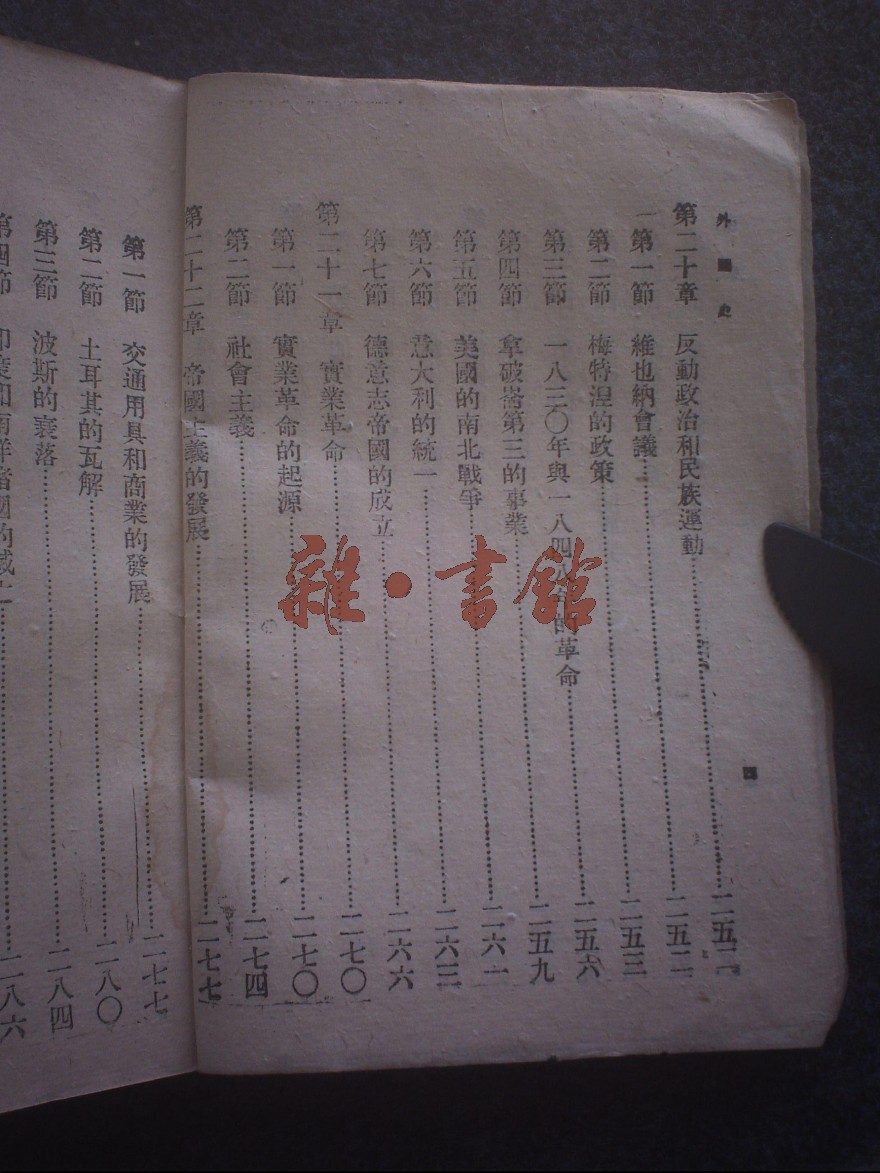 外國史
第二十章 反動政治和民族運動……二五二
第一節 維也納會議……二五二
第二節 梅特涅的政策……二五三
第三節 一八三〇年與一八四八年的革命……二五六
第四節 拿破崙第三的事業……二五九
第五節 美國的南北戰爭……二六一
第六節 意大利的統一……二六三
第七節 德意志帝國的成立……二六六
第二十一章 實業革命……二七〇
第一節 實業革命的起源……二七〇
第二節 社會主義……二七四
第二十二章 帝國主義的發展……二七七
四
第一節 交通用具和商業的發展……二七七
第二節 土耳其的瓦解……二八〇
第三節 波斯的衰落……二八四
第四節 印度和南洋諸國的滅亡……二八六
雜·書館